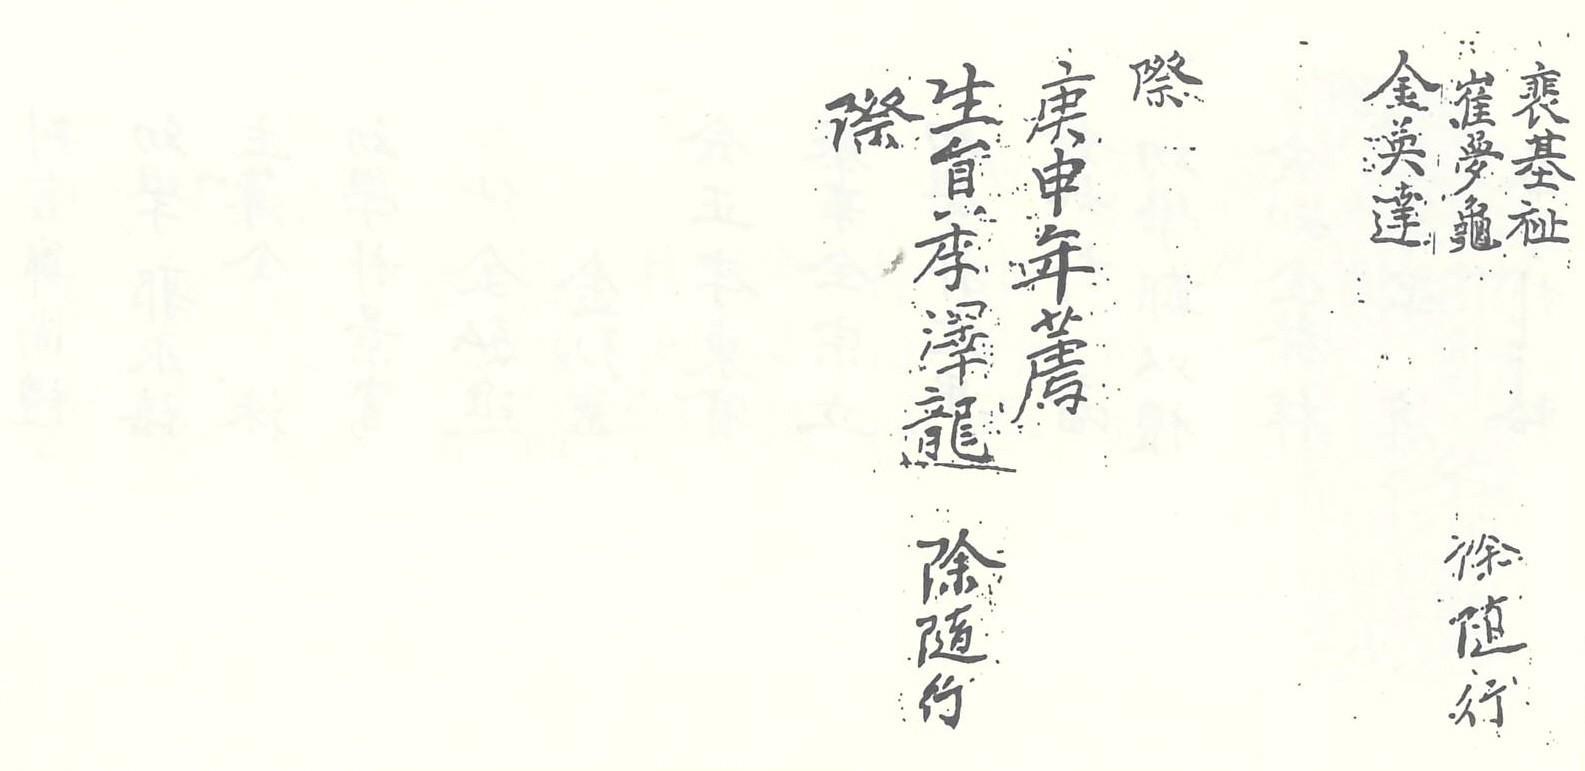 裴基祉
崔夢龜
金英達
徐随行
際
庚申年薦
生員李澤龍
除随行
際